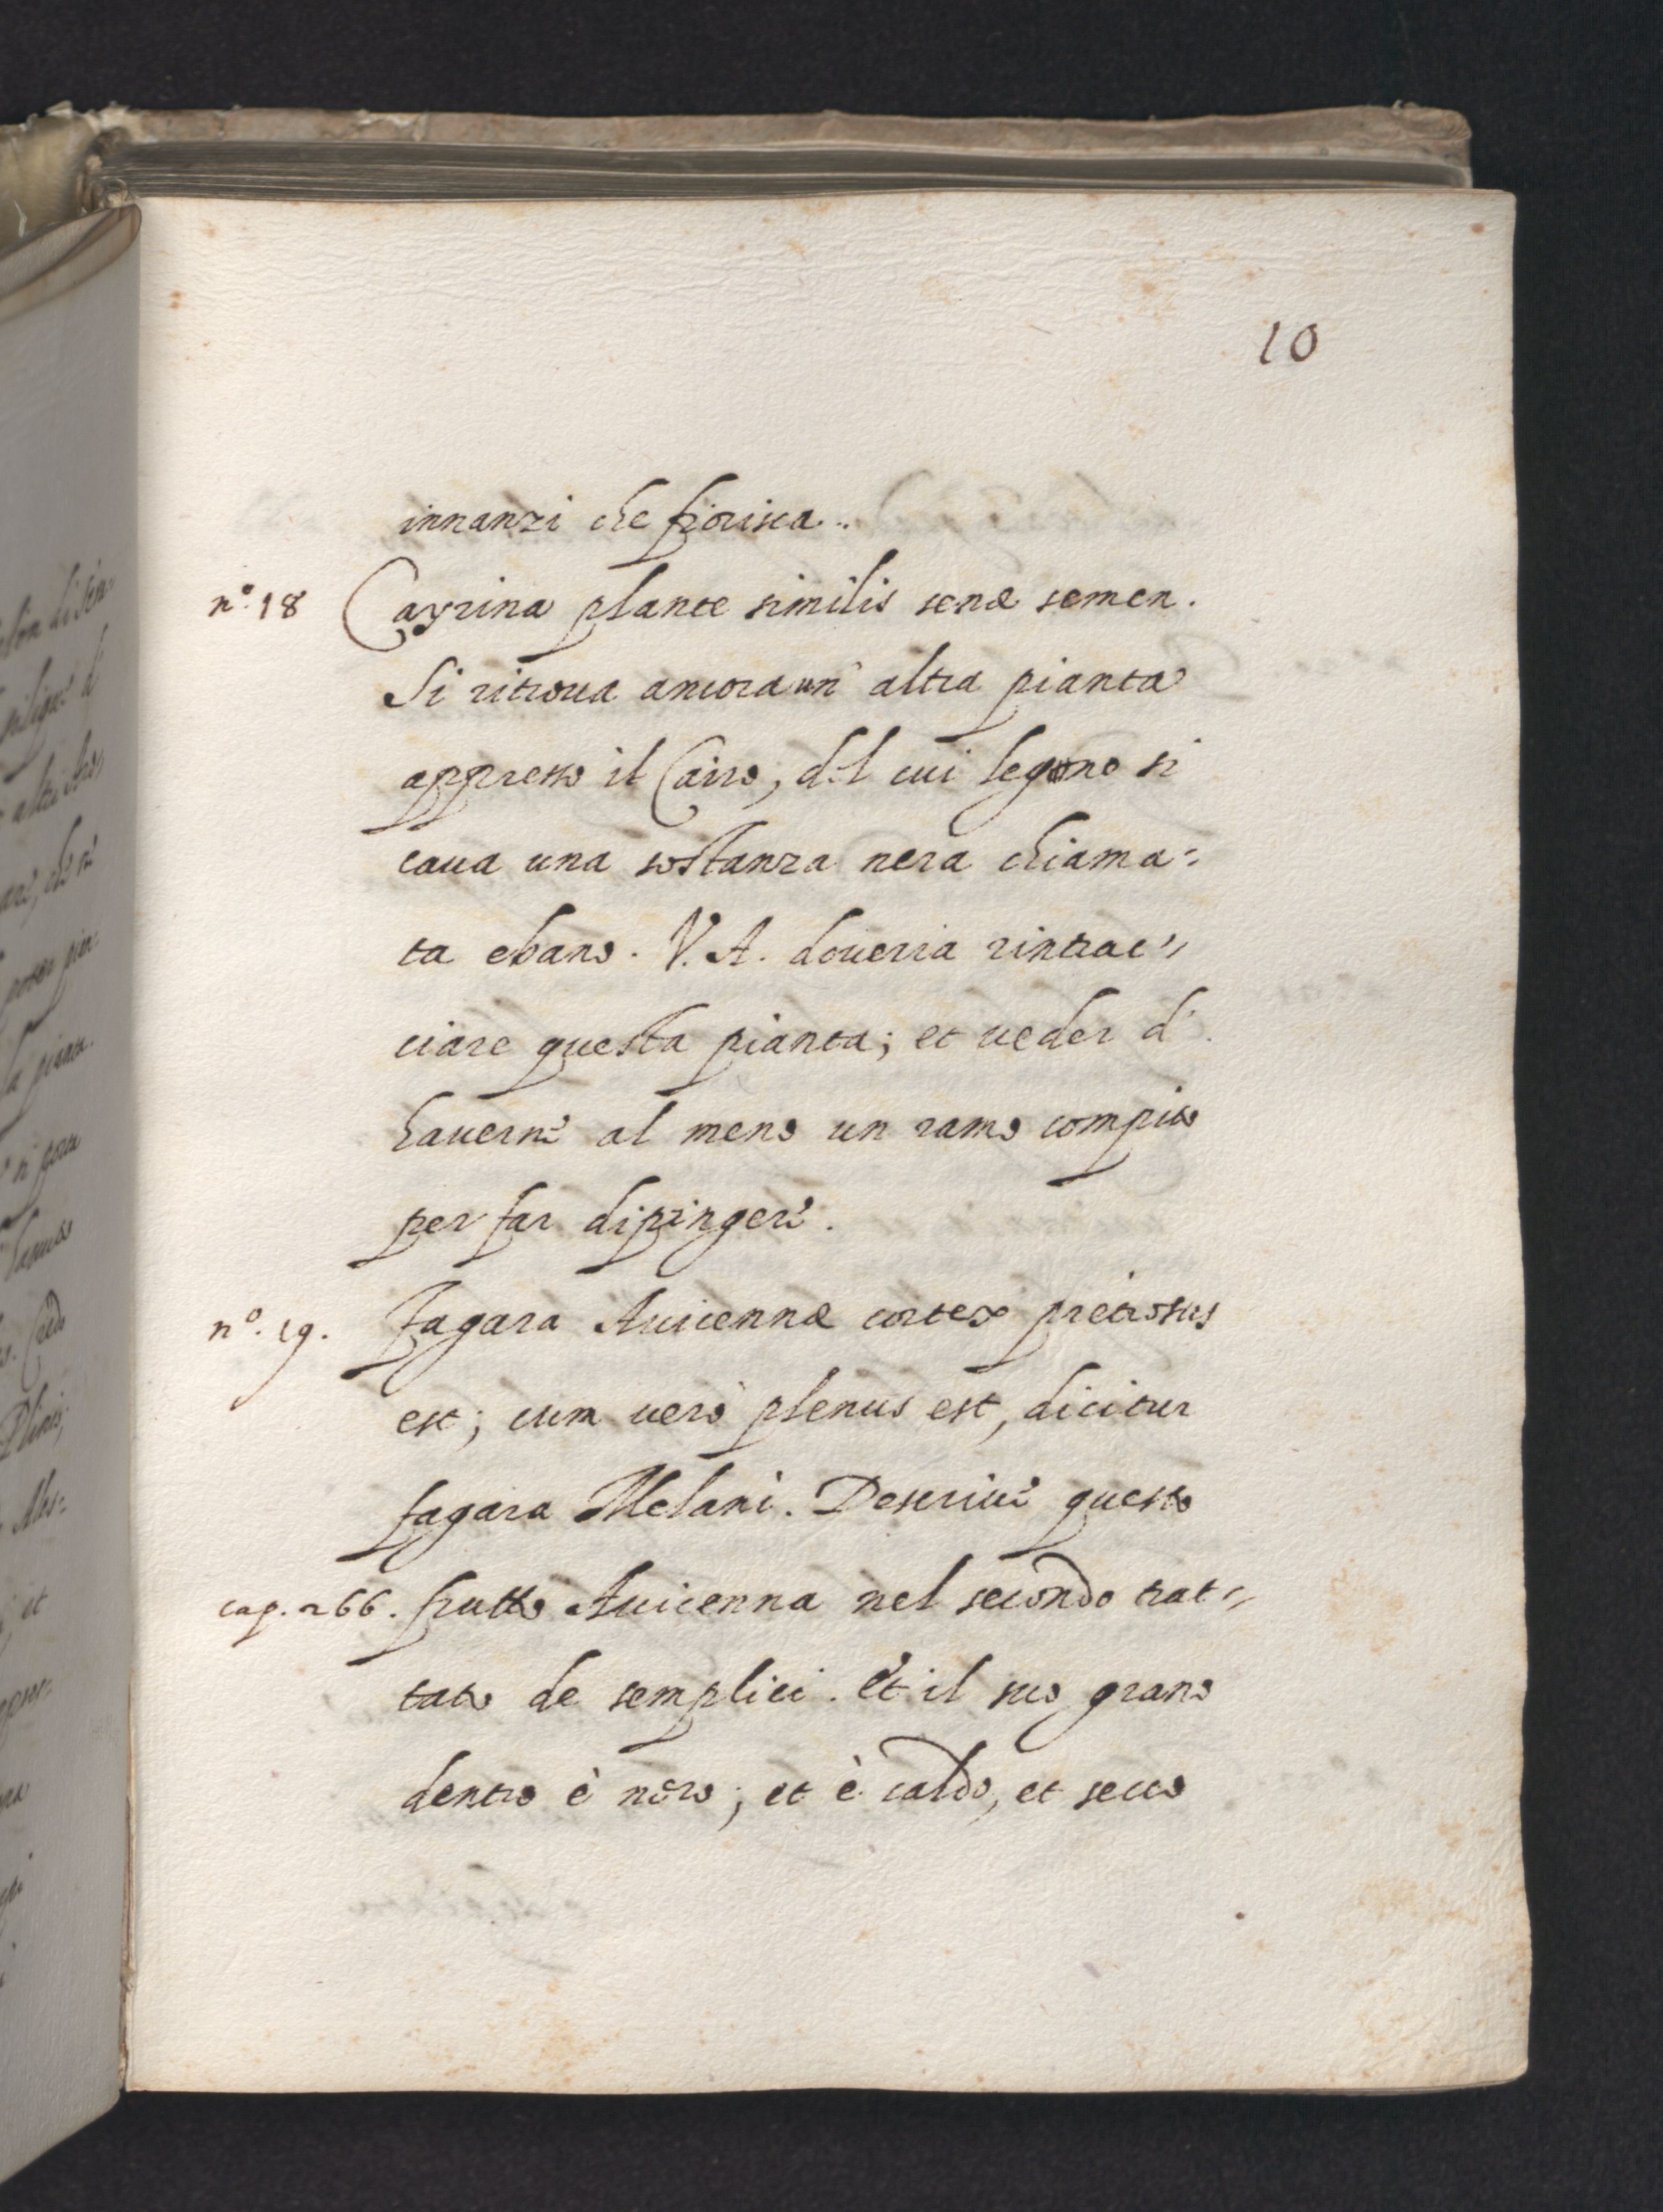 10
innanzi che fiorisca..
n.º 18 Cayrina plante similis senæ semen.
Si ritroua ancora un' altra pianta
appresso il Cairo, del cui legono si
caua una sostanza nera chiama=
ta ebano. V. A. doueria rintrac=
ciare questa pianta; et ueder d'
hauerne al meno un ramo compito
per far dipingere.
nº. 19. fagara Auicennæ cortex pretiosus
est; cum uerò plenus est, dicitur
fagara Melani. Descriue questo
cap. 266. frutto Auicenna nel secondo trat=
tato de semplici. et il suo grano
dentro è nero; et è caldo, et secco